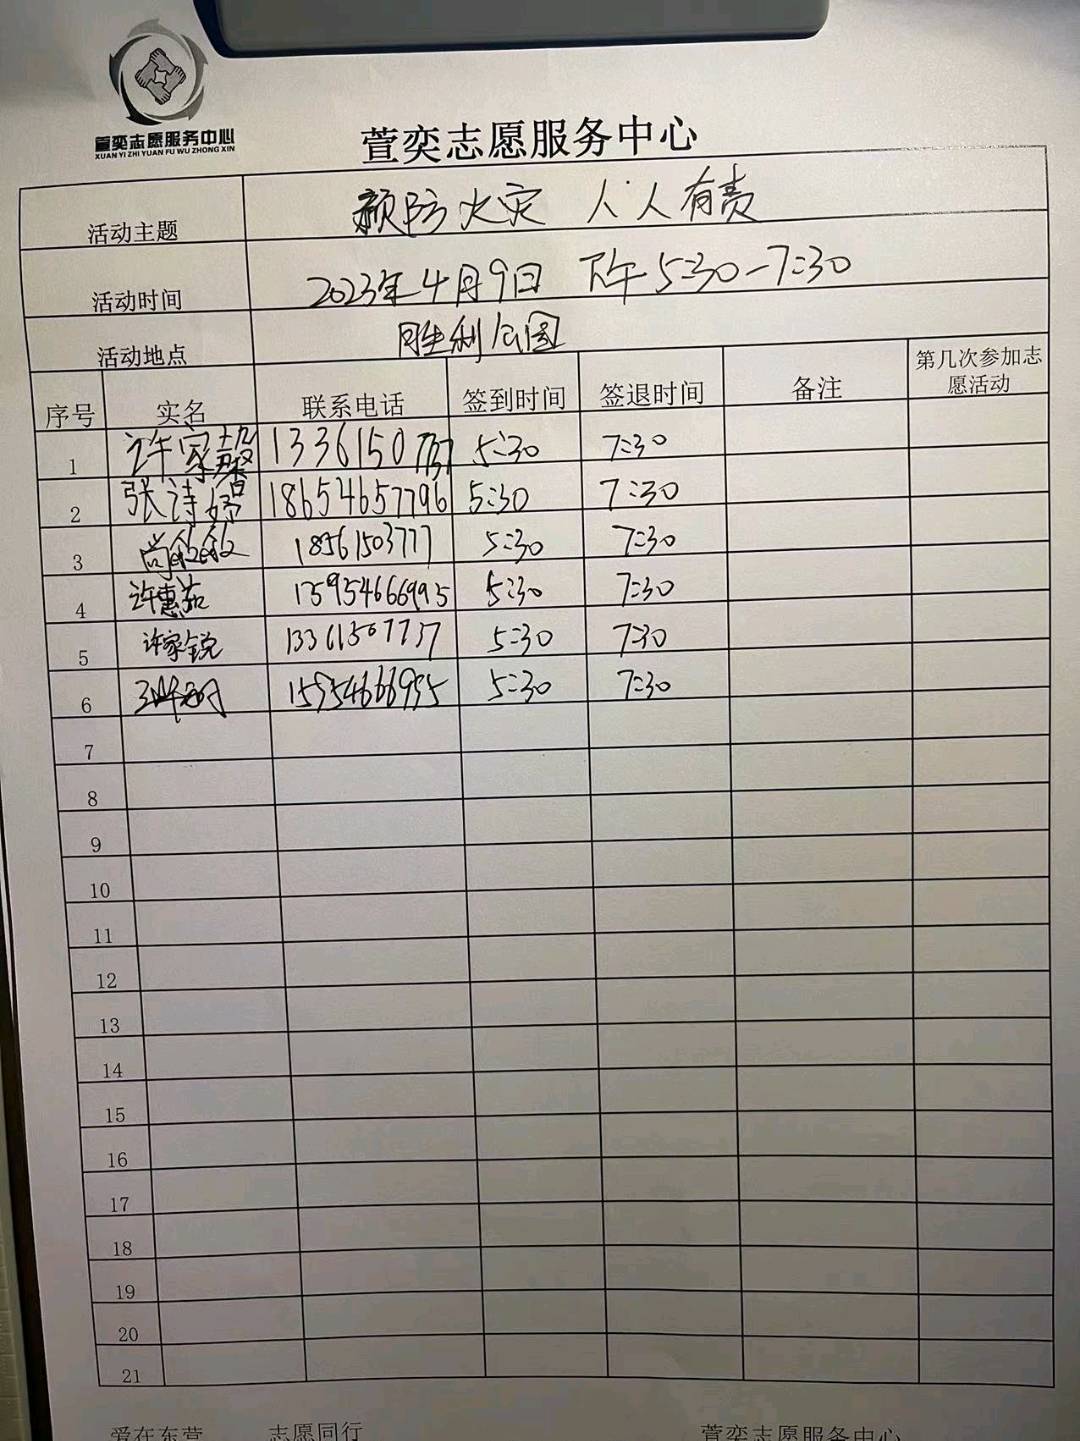 萱奕志愿服务中心
XUAN YI ZHI YUAN FU WU ZHONG XIN
萱奕志愿服务中心
活动主题 预防火灾 人人有责
活动时间 2023年4月9日 下午5:30-7:30
活动地点 胜利公园
序号 实名 联系电话 签到时间 签退时间 备注 第几次参加志愿活动
1 许家馨 1336150 5:30 7:30
2 张诗婷 18654657796 5:30 7:30
3 尚敏敏 18561503777 5:30 7:30
4 许惠茹 5:30 7:30
5 许家锐 13361507737 5:30 7:30
6 15954666995 5:30 7:30
7
8
9
10
11
12
13
14
15
16
17
18
19
20
21
爱在东营 志愿同行 萱奕志愿服务中心